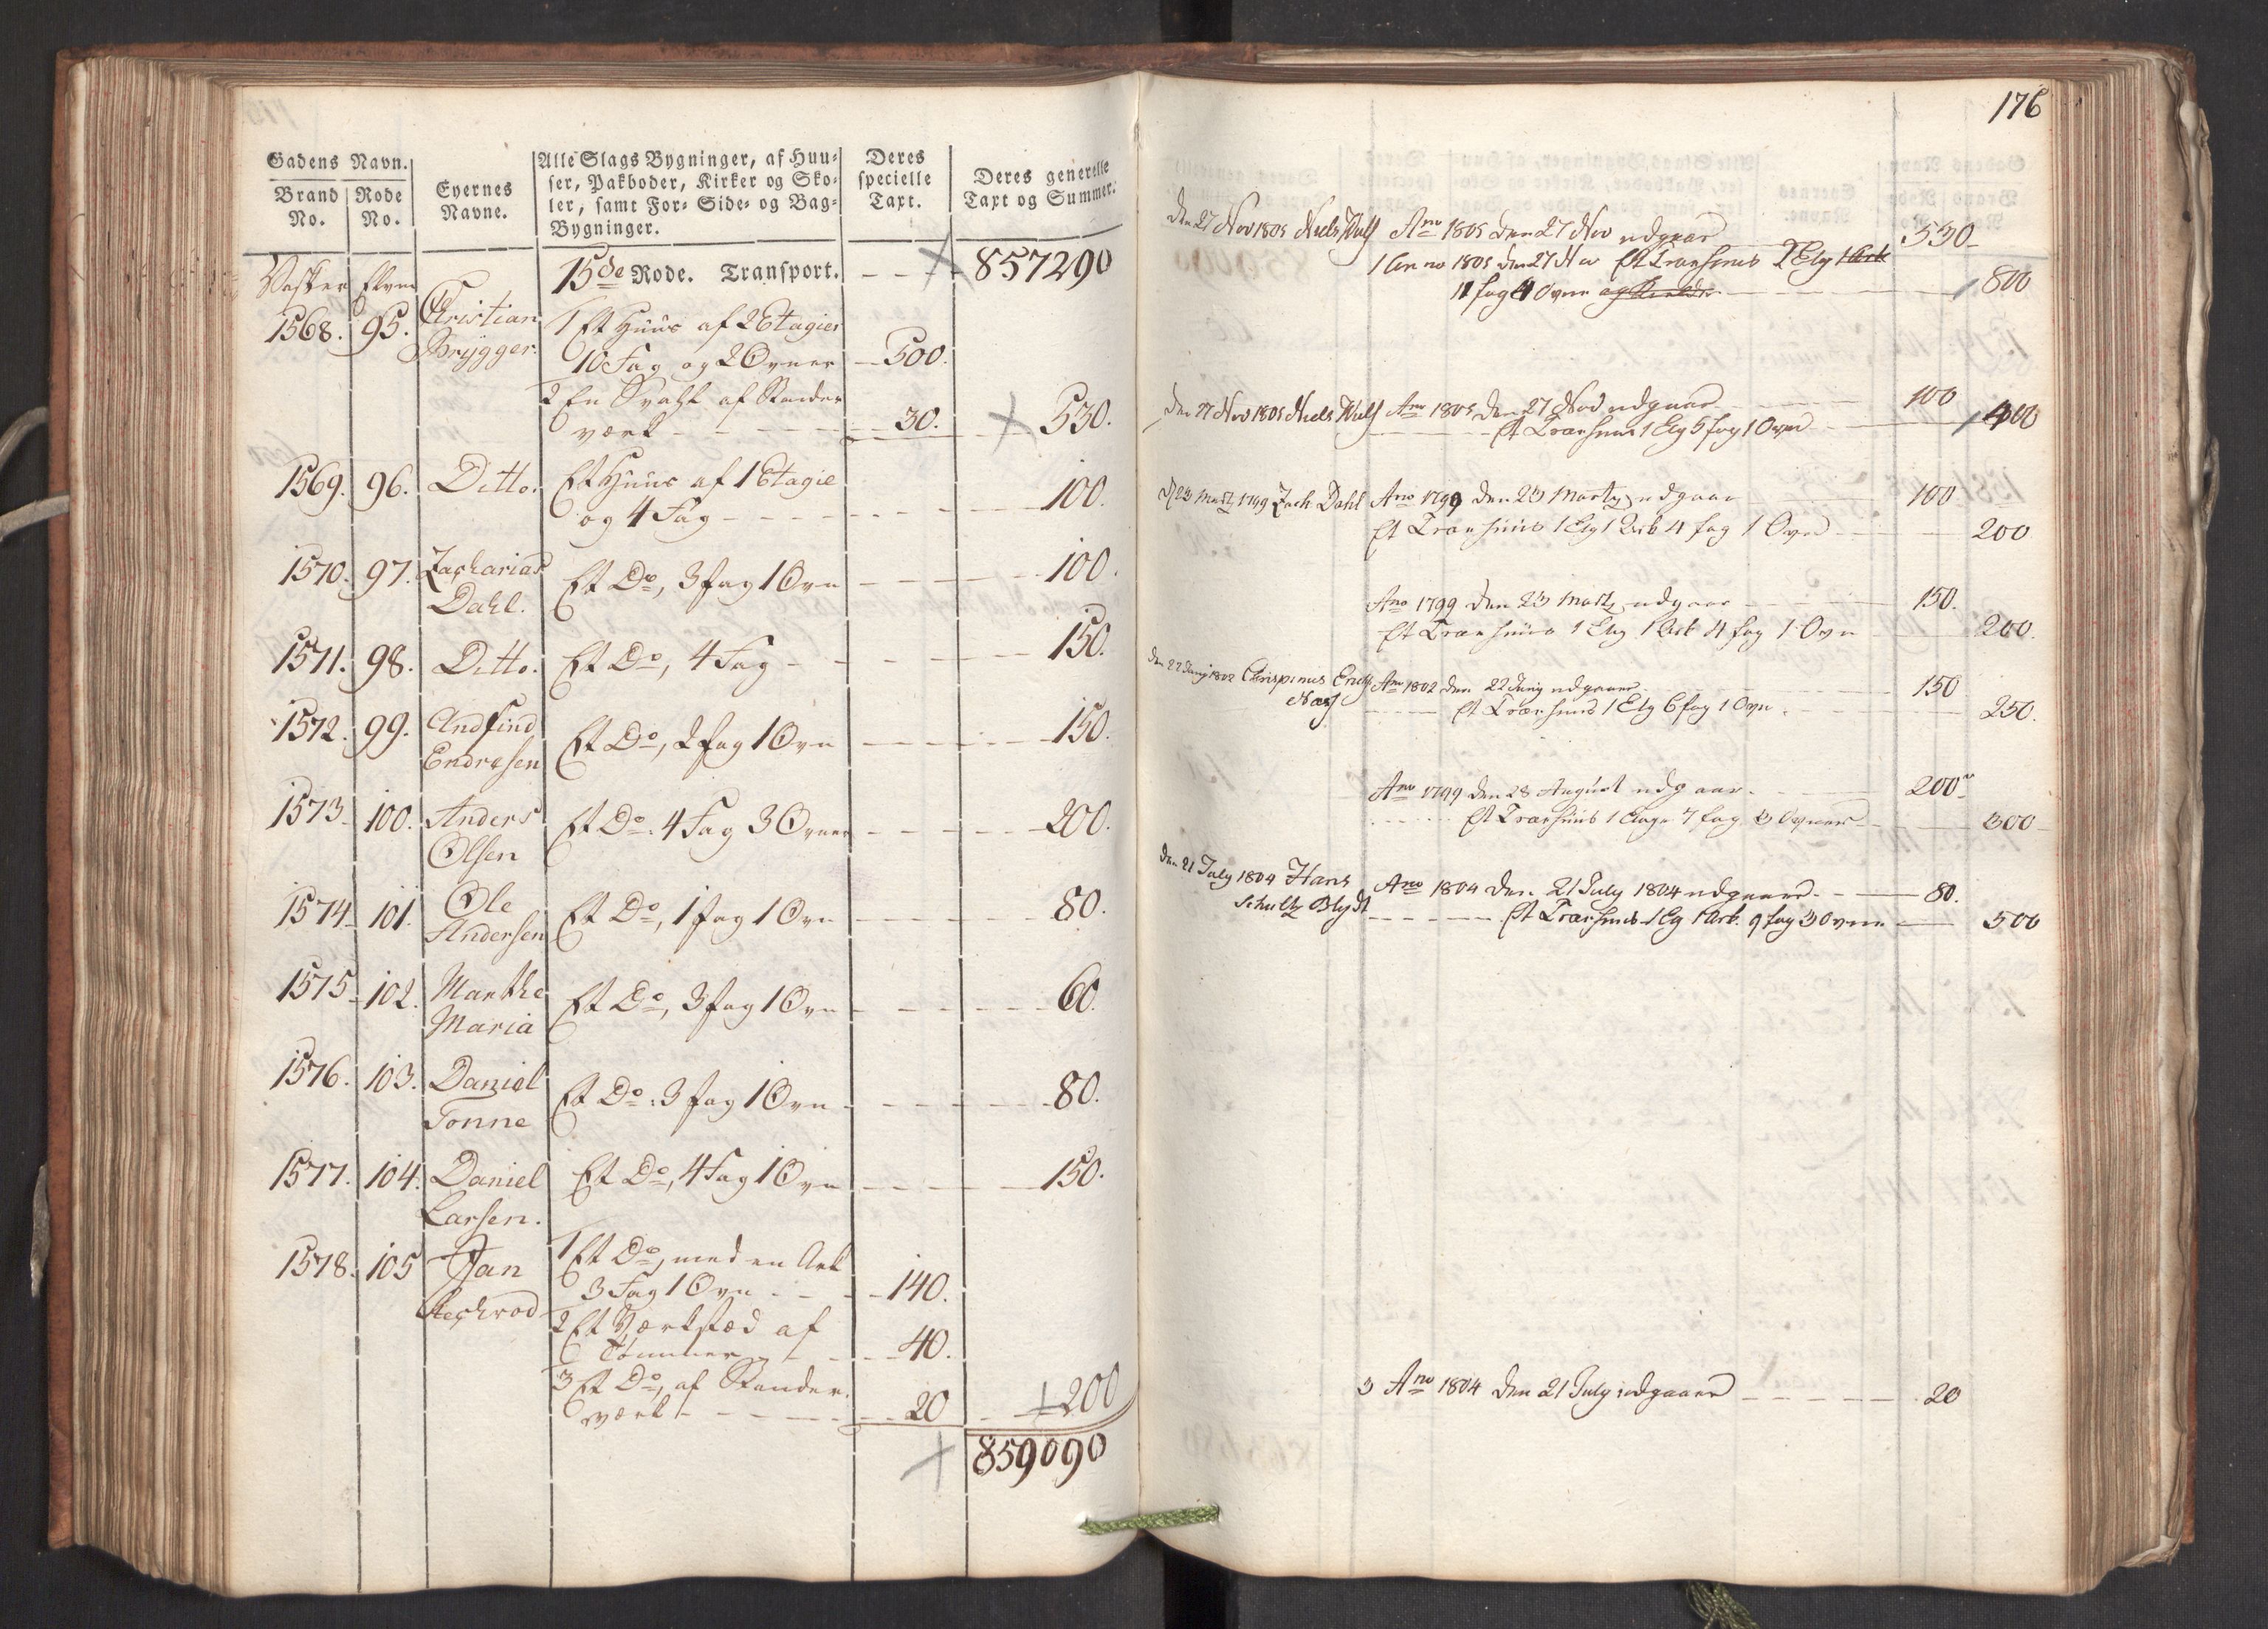 Gadens Navn.
Brand No.
Rode No.
Eyernes Navne.
Alle Slags Bygninger, af Huu=
ser, Pakboder, Kirker og Sko=
ler, samt For= Side= og Bag=
Bygninger.
Deres specielle Taxt.
Deres generelle Taxt og Summer.
15de Rode. Transport. 857290
1568. 95. Christian 1 Et Huus af 2 Etagier
Brygger. 10 Fag og 2 Ovner 500.
2 En Svahl af Stander
værk 30. 530.
1569. 96. Ditto. Et Huus af 1 Etagie
og 4 Fag 100.
1570. 97. Zacharias Et Do, 3 fag 1 Ovn 100.
Dahl.
1571. 98. Ditto. Et Do, 4 Fag 150.
1572. 99. Andfind Et Do, 2 fag 1 Ovn 150.
Endresen
1573. 100. Anders Et Do. 4 Fag 3 Ovner 200.
Olsen
1574. 101. Ole Et Do, 1 fag 1 Ovn 80.
Andersen
1575. 102. Marthe Et Do, 3 fag 1 Ovn 60.
Maria
1576. 103. Daniel Et Do. 3 fag 1 Ovn 80.
Tonne
1577. 104. Daniel Et Do, 4 Fag 1 Ovn 150.
Larsen.
1578. 105 Jan 1 Et Do, med en Ark
3 Fag 1 Ovn 140.
2 Et Værksted af
Tømmer 40.
3 Et Do, af Stander
værk 20 200
859090
176
den 27 Nov 1805 Niels Wulf Ano 1805 den 27 Nov udgaar 530
1 Anno 1805 den 27 Nov Et Træehuus 2 Etg 1 Ark
11 fag 4 Ovne og Kielder 800
den 27 Nov 1805 Niels Wulf Ano 1805 den 27 Nov udgaar 100
Et Træehuus 1 Etg 5 fag 1 Ovn 400
d 23 Martz 1799 Zach Dahl Ano 1799 den 23 Martz udgaar 100
Et Træehuus 1 Etg 1 Ark 4 fag 1 Ovn 200
Ano 1799 den 23 Martz udgaar 150.
Et Træehuus 1 Etg 1 Ark 4 fag 1 Ovn 200.
den 22 Juny 1802 Chrispinus Ano 1802 den 22 Juny udgaar 150
Et Træehuus 1 Etg 6 fag 1 Ovn. 250.
Ano 1799 den 28 August udgaar 200
Et Træehuus 1 Etage 7 fag 3 Ovner 300
den 21 July 1804 Hans Ano 1804 den 21 July 1804 udgaar 80.
Schultz Blydt Et Træehuus 1 Etg 1 Ark 9 fag 3 Ovne 500
3 Ano 1804 den 21 July udgaar 20